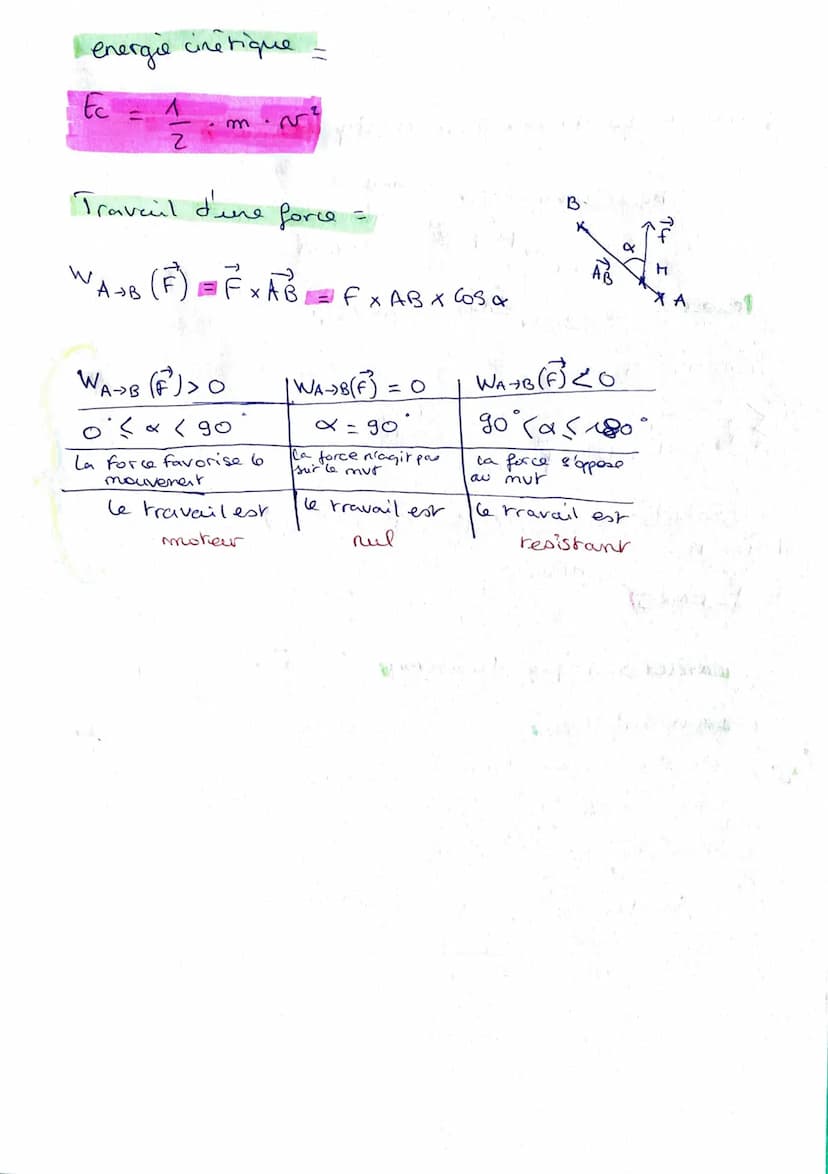 energie cinétique =
Ec = 1/2 · m · v²
Travail d'une force =
W A→B (F⃗) = F⃗ x AB⃗ = F x AB x cos α
B
α
F⃗
AB⃗
M
A
WA→B (F⃗) > 0 | WA→B(F⃗) = 0 | WA→B(F⃗) < 0
0° ≤ α < 90° | α = 90° | 90° < α ≤ 180°
La force favorise le mouvement | la force n'agit pas sur le mvt | La force s'oppose au mvt
le travail est moteur | le travail est nul | le travail est resistant